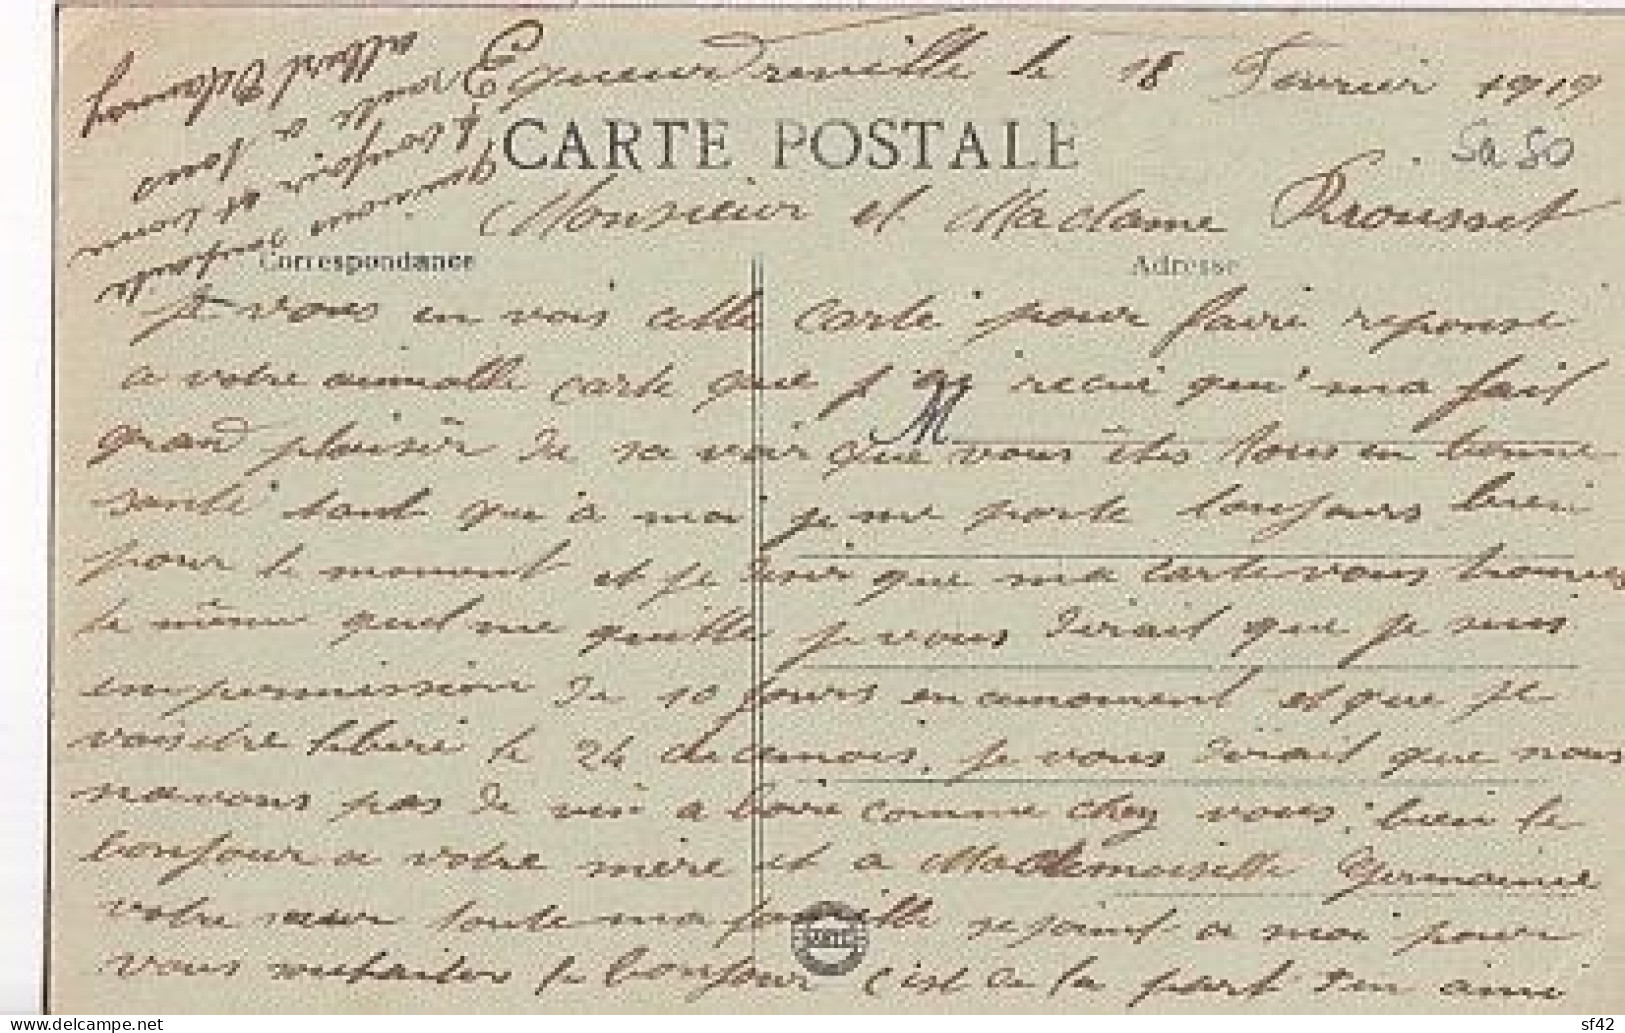 Equeurdreville le 18 Fevrier 1919
CARTE POSTALE
50
Monsieur et Madame Rousset
Correspondance Adresse
Je vous en vois cette carte pour faire reponse
a votre aimable carte que j'ai recue qui ma fait
M
grand plaisir de savoir que vous êtes tous en bonne
santé tant qu'à moi je me porte toujours bien
pour le moment et je desir que ma carte vous trouves
de même quel me quitte je vous dirait que je suis
en permission de 10 jours en cemoment et que je
vais être libere le 24 de cemois. je vous dirait que nous
navons pas de vin a boire comme chez vous. bien le
bonjour a votre mère et a Mademoiselle Germaine
votre sœur toute ma famille se joint a moi pour
vous souhaiter le bonjour c'est de la part d'un ami
qui vous
et vous
a
albert
delcampe.net
sf42